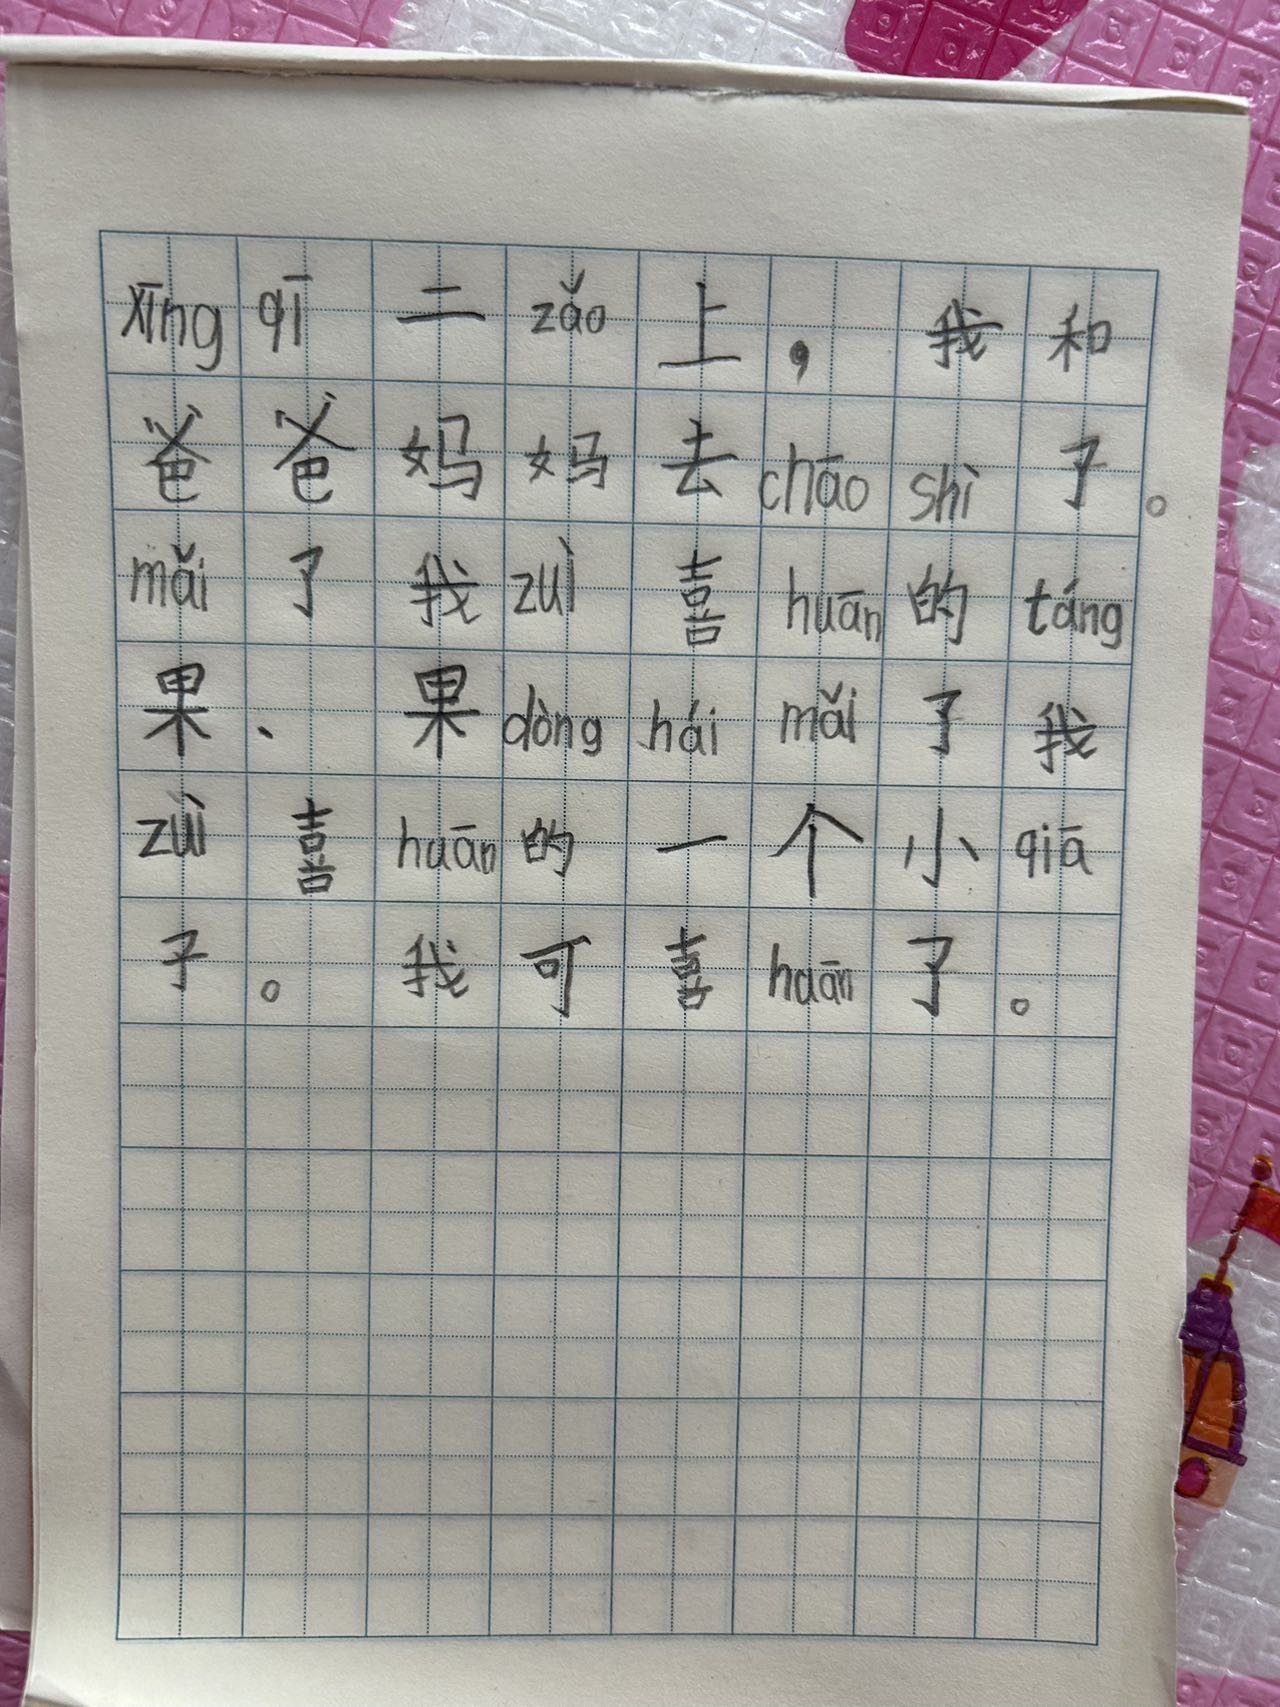 xīng qī 二 zǎo 上，我和
爸爸妈妈去 chāo shì 了。
mǎi 了我 zuì 喜 huān 的 táng
果、果 dòng hái mǎi 了我
zuì 喜 huān 的一个小 qiā
子。我可喜 huān 了。